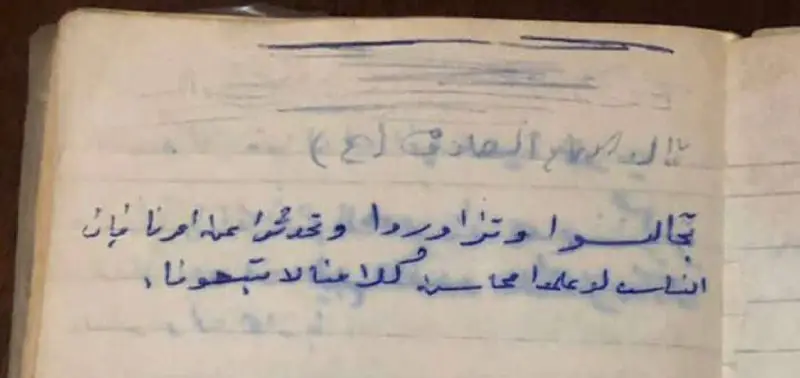 قال الامام الصادق (ع)
تجالسوا وتزاوروا وتحدثوا عن امرنا فإن
الناس لو علموا محاسن كلامنا لاتبعونا.